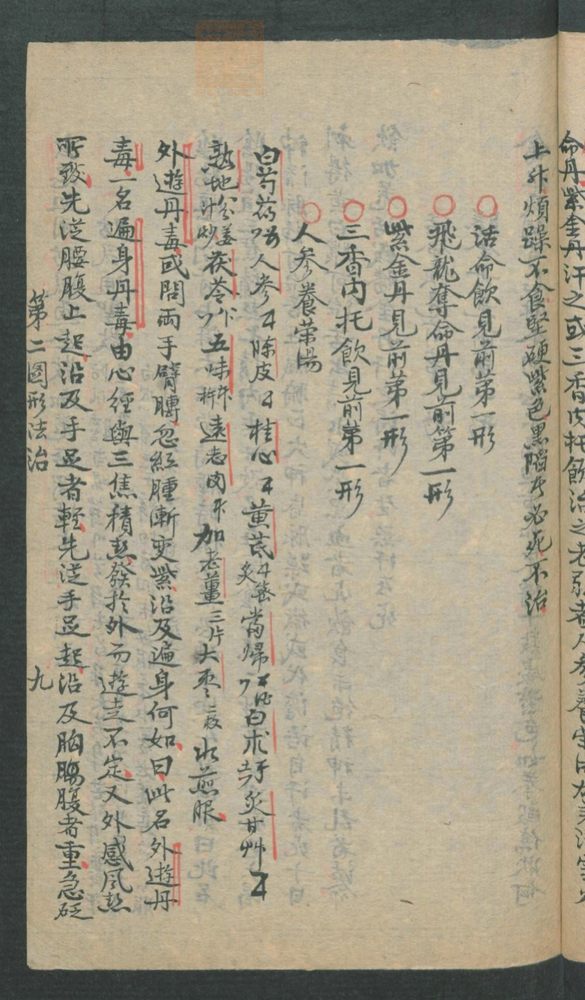 命丹紫金丹汗之或三香內托飲治之老弱者人參養
上外煩躁不食堅硬紫色黑陷者必死不治
○活命飲見前第一形
○飛龍奪命丹見前第一形
○紫金丹見前第一形
○三香內托飲見前第一形
○人參養榮湯
白芍藥 人參 陳皮 桂心 黃芪 炙 當歸 白朮 炙甘艸
熟地 姜 炒 茯苓 五味 遠志肉 加老薑三片大枣二枚水煎服
外遊丹毒或問兩手臂膊忽經腫漸变紫沿及遍身何如曰此名外遊丹
毒一名遍身丹毒由心經與三焦積熱發於外而遊走不定又外感風熱
所致先從腰腹上起沿及手足者輕先從手足起沿及胸膓腹者重急砭
第二圖形法治 九